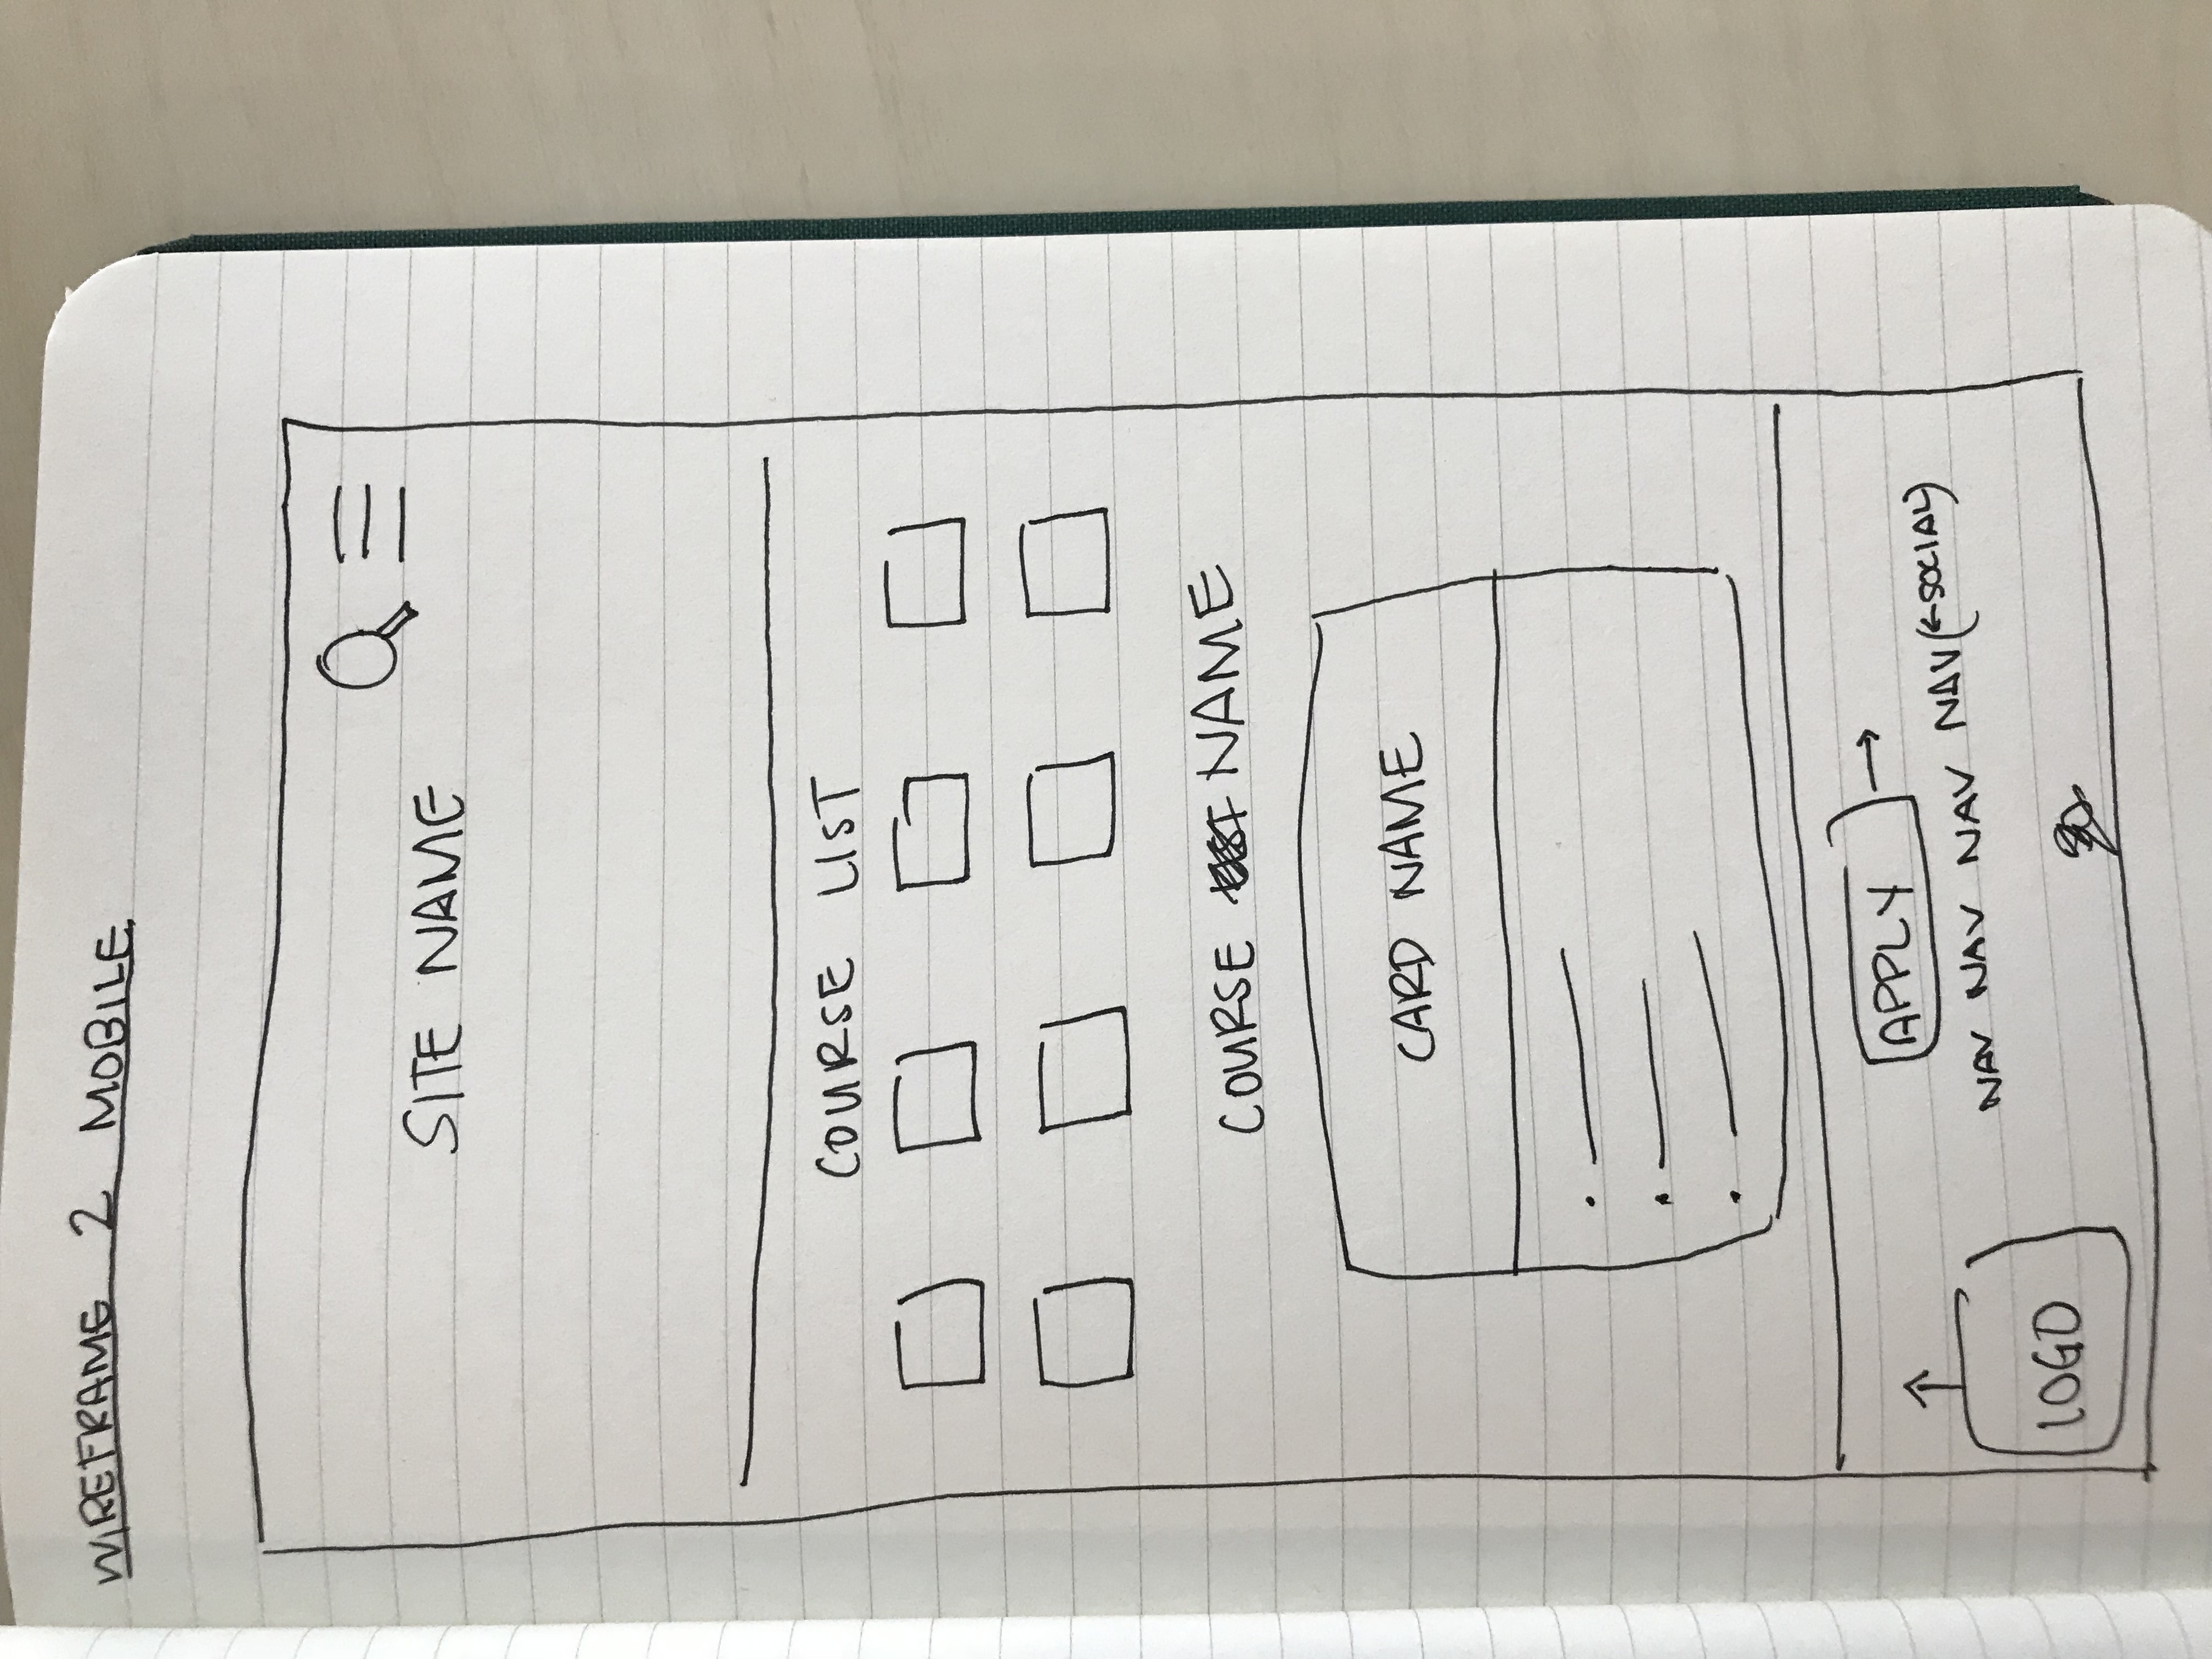 WIREFRAME 2 MOBILE
SITE NAME
COURSE LIST
COURSE NAME
CARD NAME
APPLY →
NAV NAV NAV NAV (←SOCIAL)
LOGO